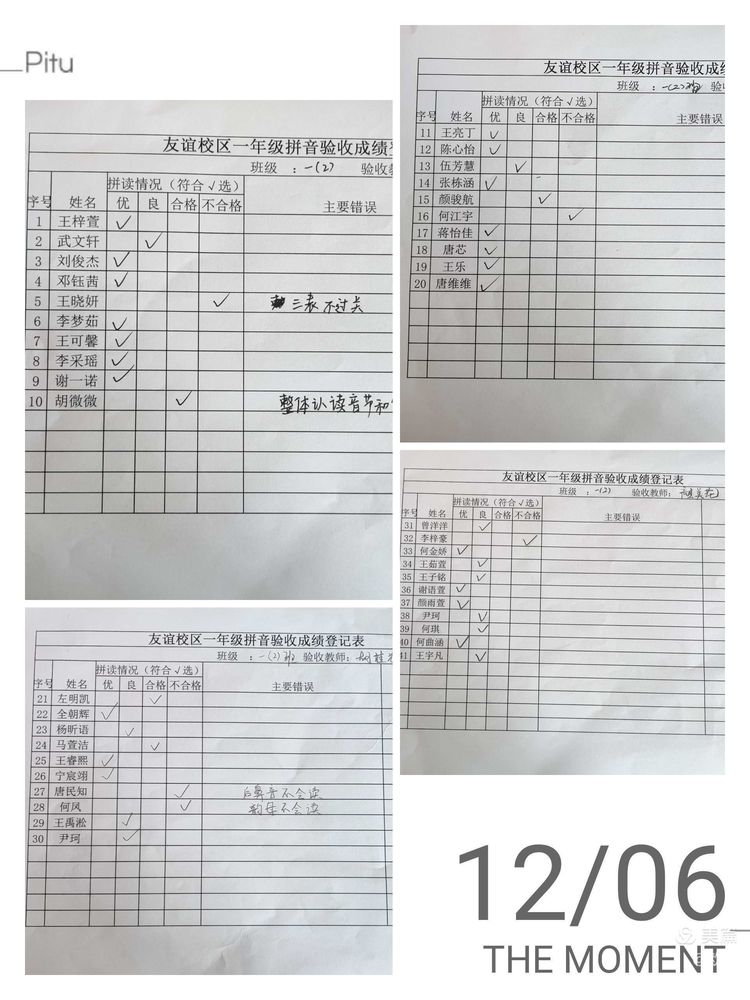 Pitu
友谊校区一年级拼音验收成绩
班级 ：一(2) 验收教
序号 姓名 拼读情况（符合√选） 主要错误
优 良 合格 不合格
1 王梓萱 √
2 武文轩 √
3 刘俊杰 √
4 邓钰茜 √
5 王晓妍 √ 三表不过关
6 李梦茹 √
7 王可馨 √
8 李采瑶 √
9 谢一诺 √
10 胡微微 √ 整体认读音节和
友谊校区一年级拼音验收成绩
班级 ：一(2)班 验
序号 姓名 拼读情况（符合√选） 主要错误
优 良 合格 不合格
11 王亮丁 √
12 陈心怡 √
13 伍芳慧 √
14 张栋涵 √
15 颜骏航 √
16 何江宇 √
17 蒋怡佳 √
18 唐芯 √
19 王乐 √
20 唐维维 √
友谊校区一年级拼音验收成绩登记表
班级 ：一(2)班 验收教师：
序号 姓名 拼读情况（符合√选） 主要错误
优 良 合格 不合格
21 左明凯 √
22 全朝辉 √
23 杨昕语 √
24 马萱洁 √
25 王睿熙 √
26 宁宸翊 √
27 唐民知 √ 后鼻音不会读
28 何凤 √ 韵母不会读
29 王禹淞 √
30 尹珂 √
友谊校区一年级拼音验收成绩登记表
班级 ：一(2) 验收教师：
序号 姓名 拼读情况（符合√选） 主要错误
优 良 合格 不合格
31 曾洋洋 √
32 李梓豪 √
33 何金娇 √
34 王茹萱 √
35 王子铭 √
36 谢语萱 √
37 颜雨萱 √
38 尹珂 √
39 何琪 √
40 何曲涵 √
41 王宇凡 √
12/06
THE MOMENT
美篇